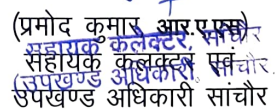 (प्रमोद कुमार आर.ए.एस)
सहायक कलेक्टर, सांचौर
सहायक कलक्टर एवं
(उपखण्ड अधिकारी, सांचौर
उपखण्ड अधिकारी सांचौर